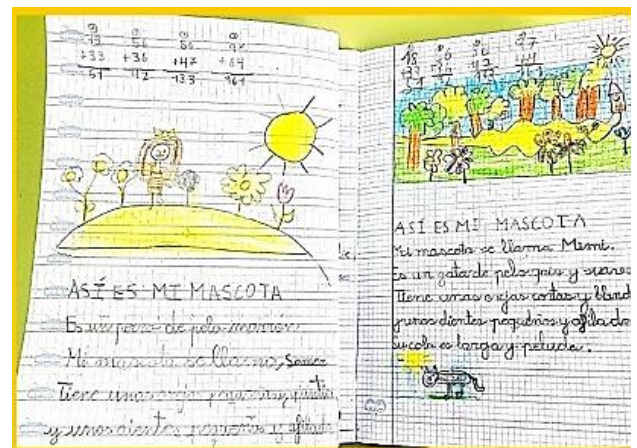 +33 +36 +47 +64
112 133
ASÍ ES MI MASCOTA
Es un perro de pelo marrón
Mi mascota se llama
Tiene unas orejas
y unos dientes pequeños y afilado
ASÍ ES MI MASCOTA
Mi mascota se llama Mimi.
Es un gata de pelo gris y suave
Tiene unas orejas cortas y bland
y unos dientes pequeños y afilado
su cola es larga y peluda.